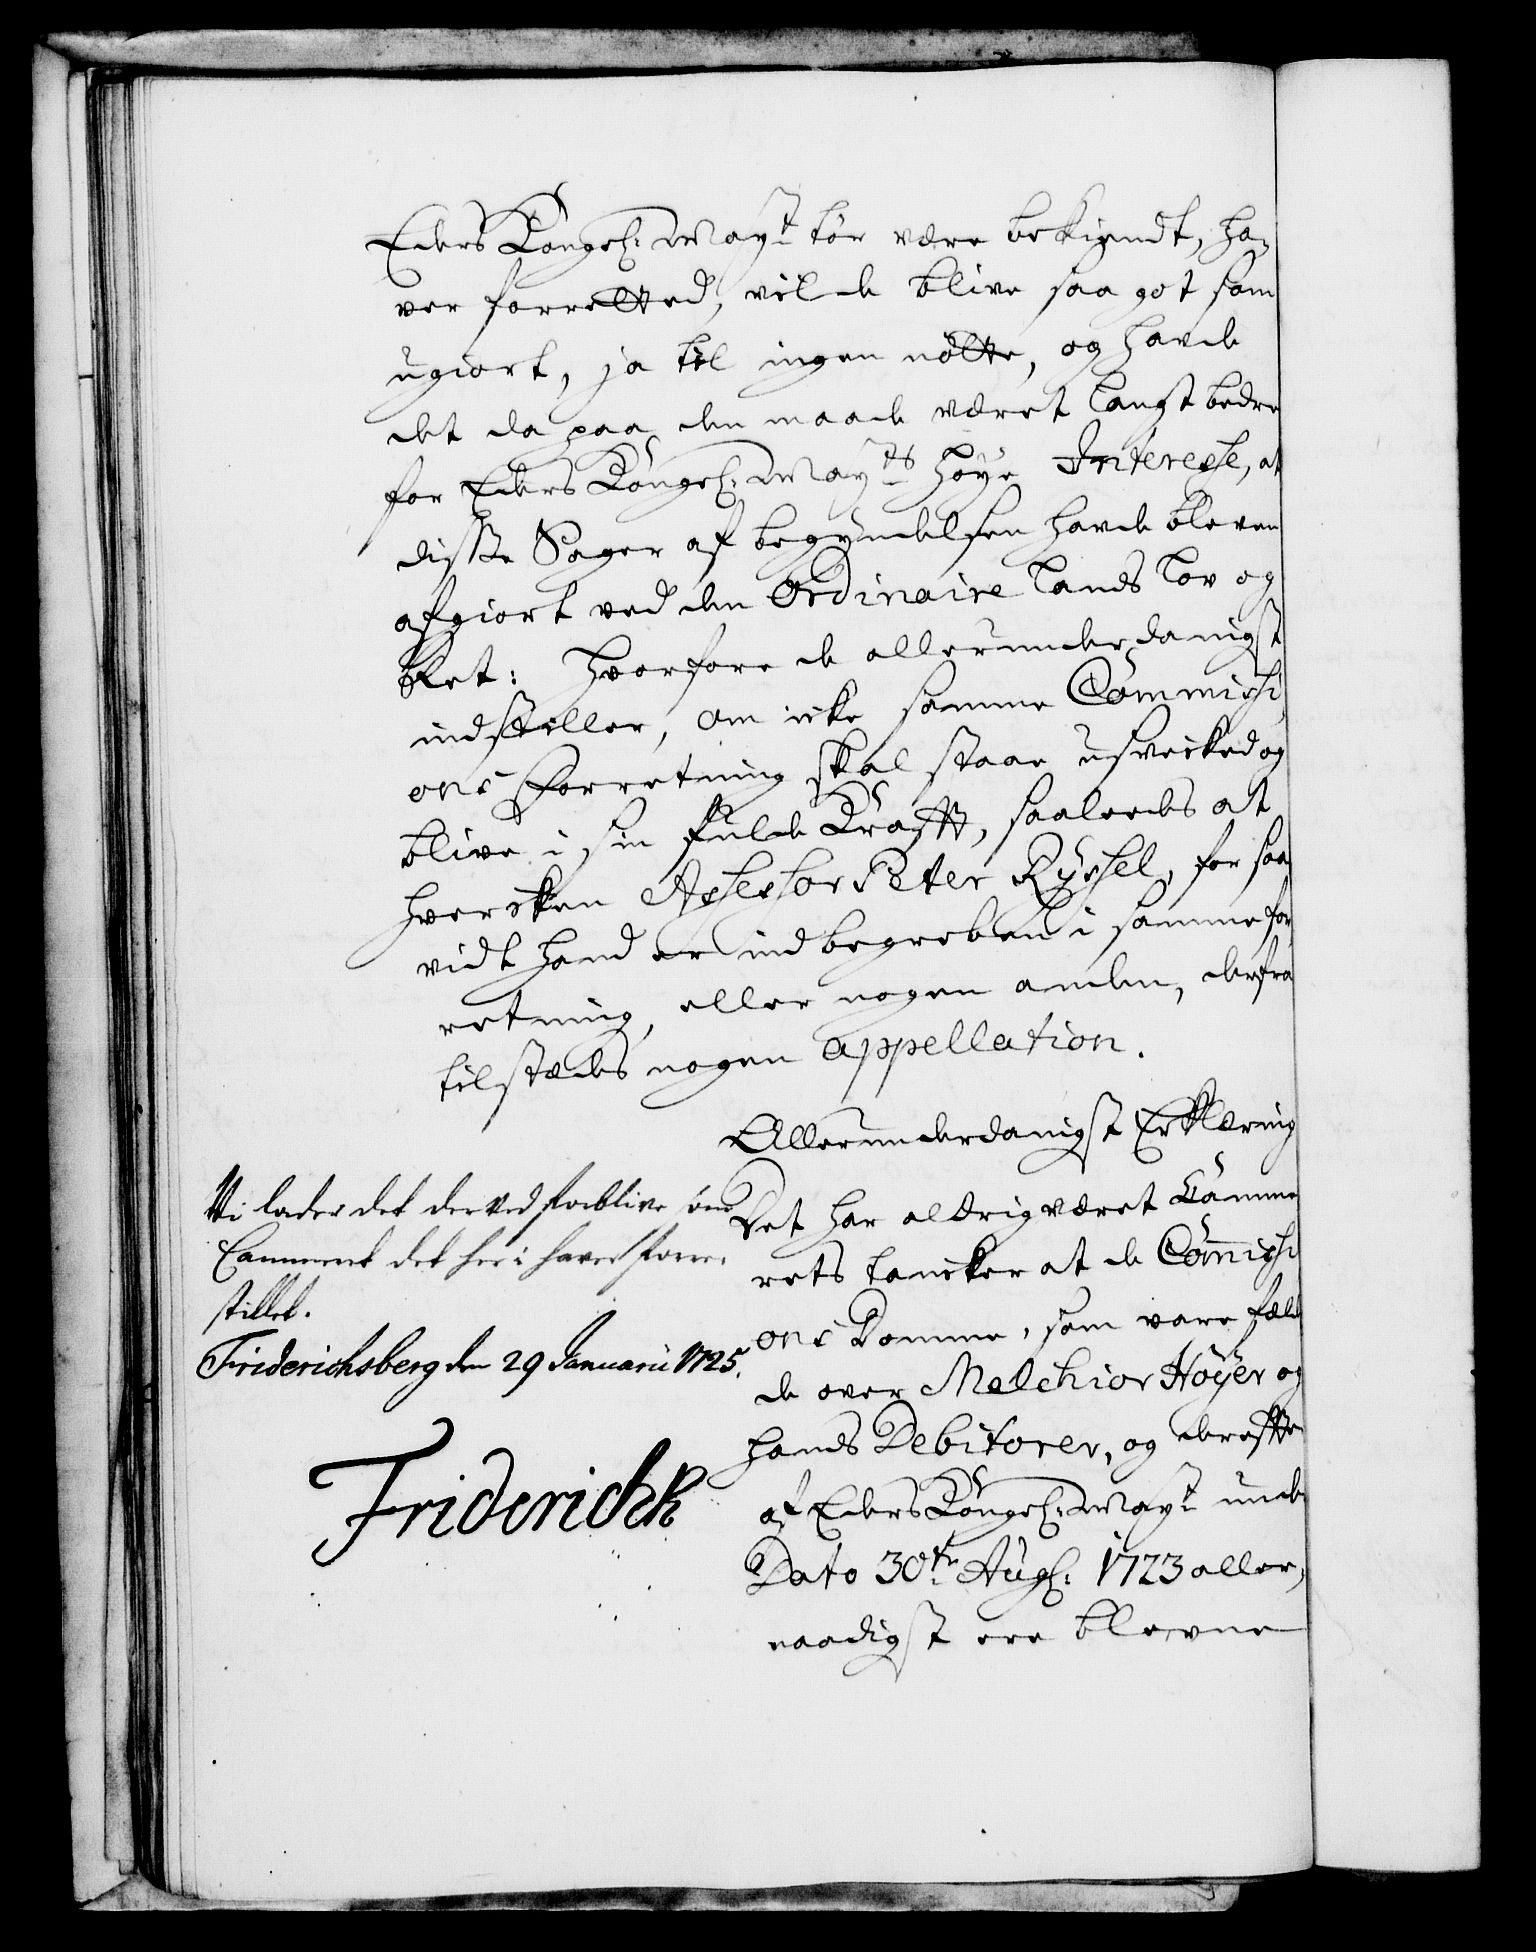 Eders Kongel: May.t tör være bekiendt, ha-
ver forretted, vilde blive saa got som
ugiort, ja til ingen nötte, og havde
det da paa den maade været langt bedre
for Eders Kongel: May.ts höye Interesse, at
disse Sager af begyndelsen havde bleven
afgiort ved den Ordinaire lands lov og
Ret: hvorfore de allerunderdanigst
indstiller, om icke samme Commissi-
ons Forretning skal staae usvecked og
blive i sin fulde Krafft, saaleedes at
hvercken Assessor Peter Ryssel, for saa
vidt hand er indbegreben i samme for-
retning, eller nogen anden, derfra
tilstædes nogen appellation.
Allerunderdanigst Erklæring
Det har aldrig været Camme-
rets tancker at de Commissi-
ons Domme, som vare fæld-
de over Melchior Höyer og
hans Debitorer, og derefter
af Eders Kongel: May.t under
Dato 30.te Aug: 1723 aller-
naadigst ere blevne
Vi lader det derved forblive som
Cammeret det her i haver fore-
stillet.
Friderichsberg den 29 Januarii 1725.
Friderich